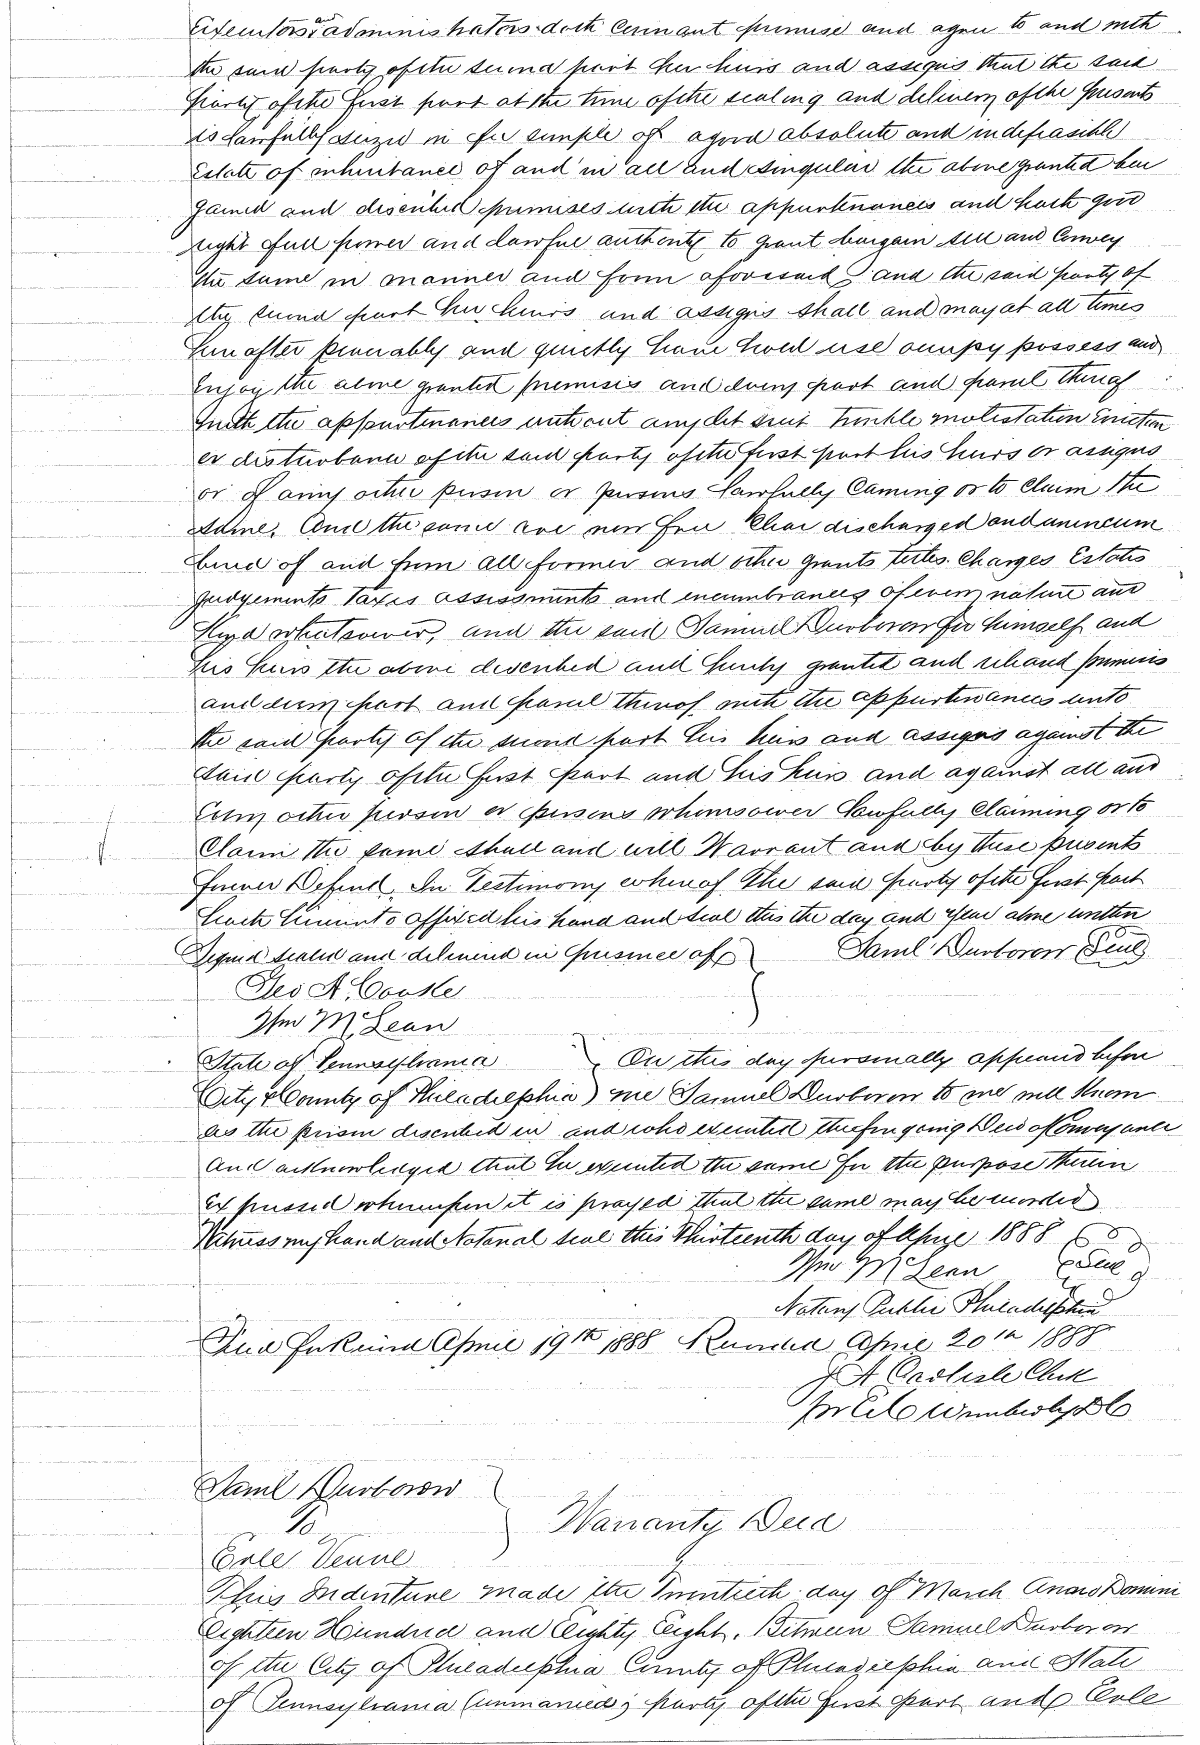 Executors and administrators doth covenant promise and agree to and with
the said party of the second part her heirs and assigns that the said
party of the first part at the time of the sealing and delivery of the presents
is lawfully seized in fee simple of a good absolute and indefeasible
Estate of inheritance of and in all and singular the above granted bar
gained and described premises with the appurtenances and hath good
right full power and lawful authority to grant bargain sell and Convey
the same in manner and form aforesaid, and the said party of
the second part her heirs and assigns shall and may at all times
hereafter peaceably and quietly have hold use occupy possess and
Enjoy the above granted premises and every part and parcel thereof
with the appurtenances without any let suit trouble molestation Eviction
or disturbance of the said party of the first part his heirs or assigns
or of any other person or persons lawfully Claiming or to Claim the
same. And the same are now free Clear discharged and unincum
bered of and from all former and other grants titles. Charges Estates
judgements Taxes assessments and encumbrances of every nature and
Kynd whatsoever, and the said Samuel Durborow for himself and
his heirs the above described and hereby granted and released premises
and every part and parcel thereof with the appurtenances unto
the said party of the second part his heirs and assigns against the
said party of the first part and his heirs and against all and
Every other person or persons whomsoever lawfully Claiming or to
Claim the same shall and will Warrant and by these presents
forever Defend. In Testimony whereof the said party of the first part
hath hereunto affixed his hand and seal this the day and year above written
Signed sealed and delivered in presence of Saml Durborow Seal
Geo A. Cooke
Wm McLean
State of Pennsylvania } On this day personally appeared before
City & County of Philadelphia) me Samuel Durborow to me well known
as the person described in and who executed the foregoing Deed of Conveyance
And acknowledged that he executed the same for the purpose therein
Expressed whereupon it is prayed that the same may be recorded
Witness my hand and Notarial seal this Thirteenth day of April 1888
Wm McLean Seal
Notary Public Philadelphia
Filed for Record April 19th 1888 Recorded April 20th 1888
J A Carlisle Clerk
Saml Durborow
To
Warranty Deed
Evle Venne
This Indenture made the Twentieth day of March Anno Domini
Eighteen Hundred and Eighty Eight. Between Samuel Durborow
of the City of Philadelphia County of Philadelphia and State
of Pennsylvania (unmarried) party of the first part and Evle